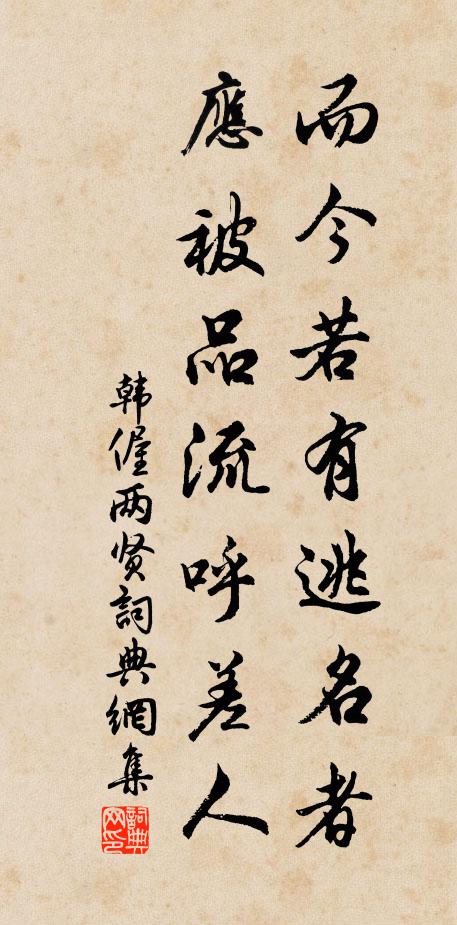 而今若有逃名者
應被品流呼差人
韩偓两贤詞典網集
詞典网印